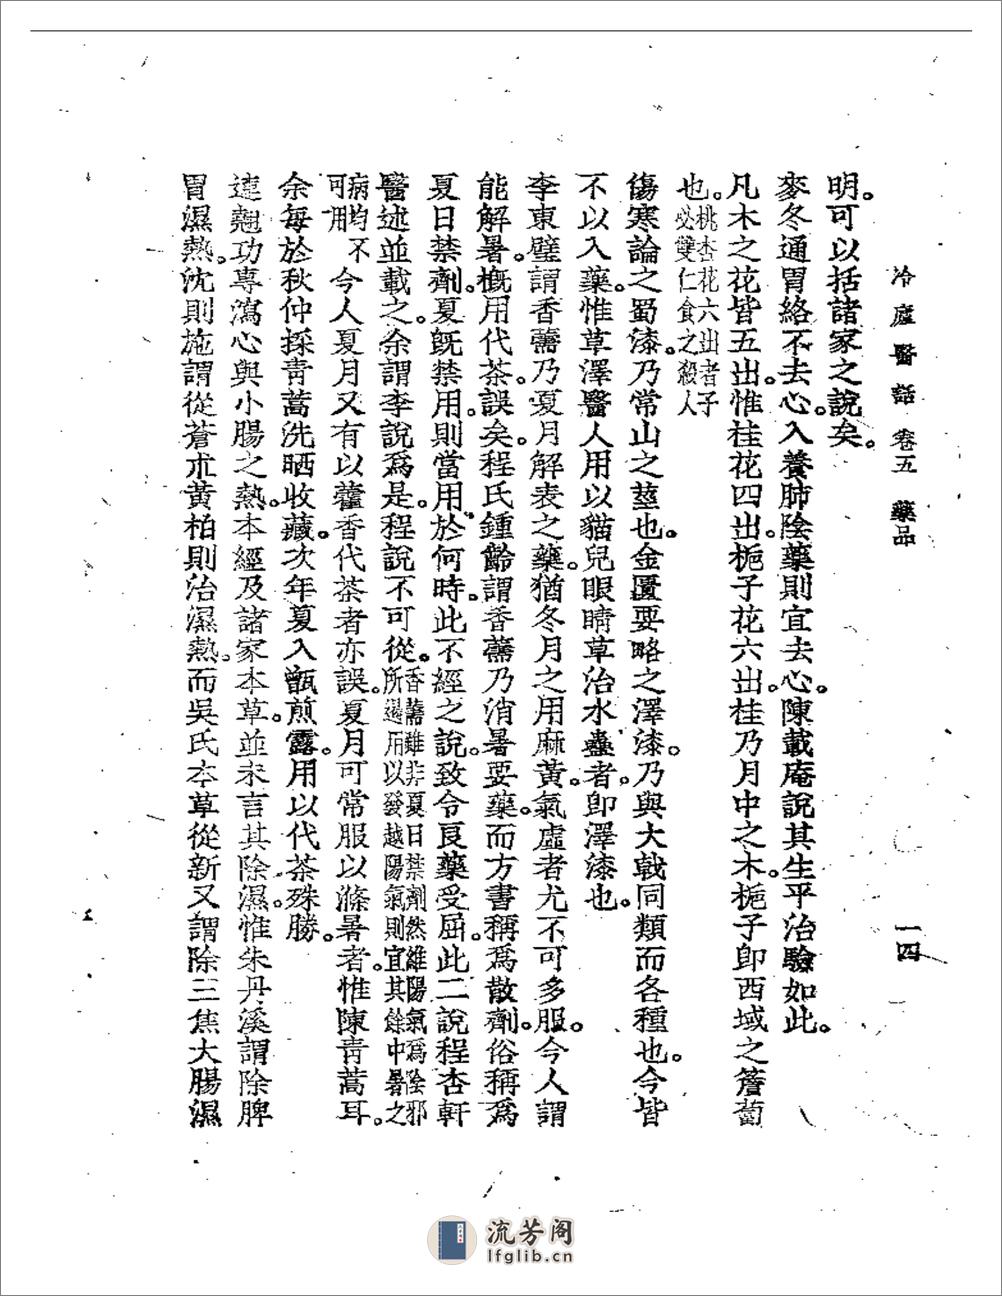 冷廬醫話 卷五 藥品 一四
明。可以括諸家之說矣。
麥冬通胃絡不去心。入養肺陰藥則宜去心。陳載庵說其生平治驗如此。
凡木之花皆五出。惟桂花四出。梔子花六出。桂乃月中之木。梔子卽西域之簷蔔
也。桃杏花六出者子必雙仁食之殺人
傷寒論之蜀漆。乃常山之莖也。金匱要略之澤漆。乃與大戟同類而各種也。今皆
不以入藥。惟草澤醫人用以貓兒眼睛草治水蠱者。卽澤漆也。
李東璧謂香薷乃夏月解表之藥。猶冬月之用麻黃。氣虛者尤不可多服。今人謂
能解暑。槪用代茶。誤矣。程氏鍾齡謂香薷乃消暑要藥。而方書稱爲散劑。俗稱爲
夏日禁劑。夏旣禁用。則當用於何時。此不經之說。致令良藥受屈。此二說程杏軒
醫述並載之。余謂李說爲是。程說不可從。香薷雖非夏日禁劑然維陽氣爲陰邪所遏用以發越陽氣則宜其餘中暑之
病均不可用 今人夏月又有以藿香代茶者亦誤。夏月可常服以滌暑者。惟陳靑蒿耳。
余每於秋仲採靑蒿洗晒收藏。次年夏入甑煎露。用以代茶殊勝。
連翹功專瀉心與小腸之熱。本經及諸家本草。並未言其除濕。惟朱丹溪謂除脾
胃濕熱。沈則施謂從蒼朮黃柏則治濕熱。而吳氏本草從新又謂除三焦大腸濕
流芳阁
lfglib.cn